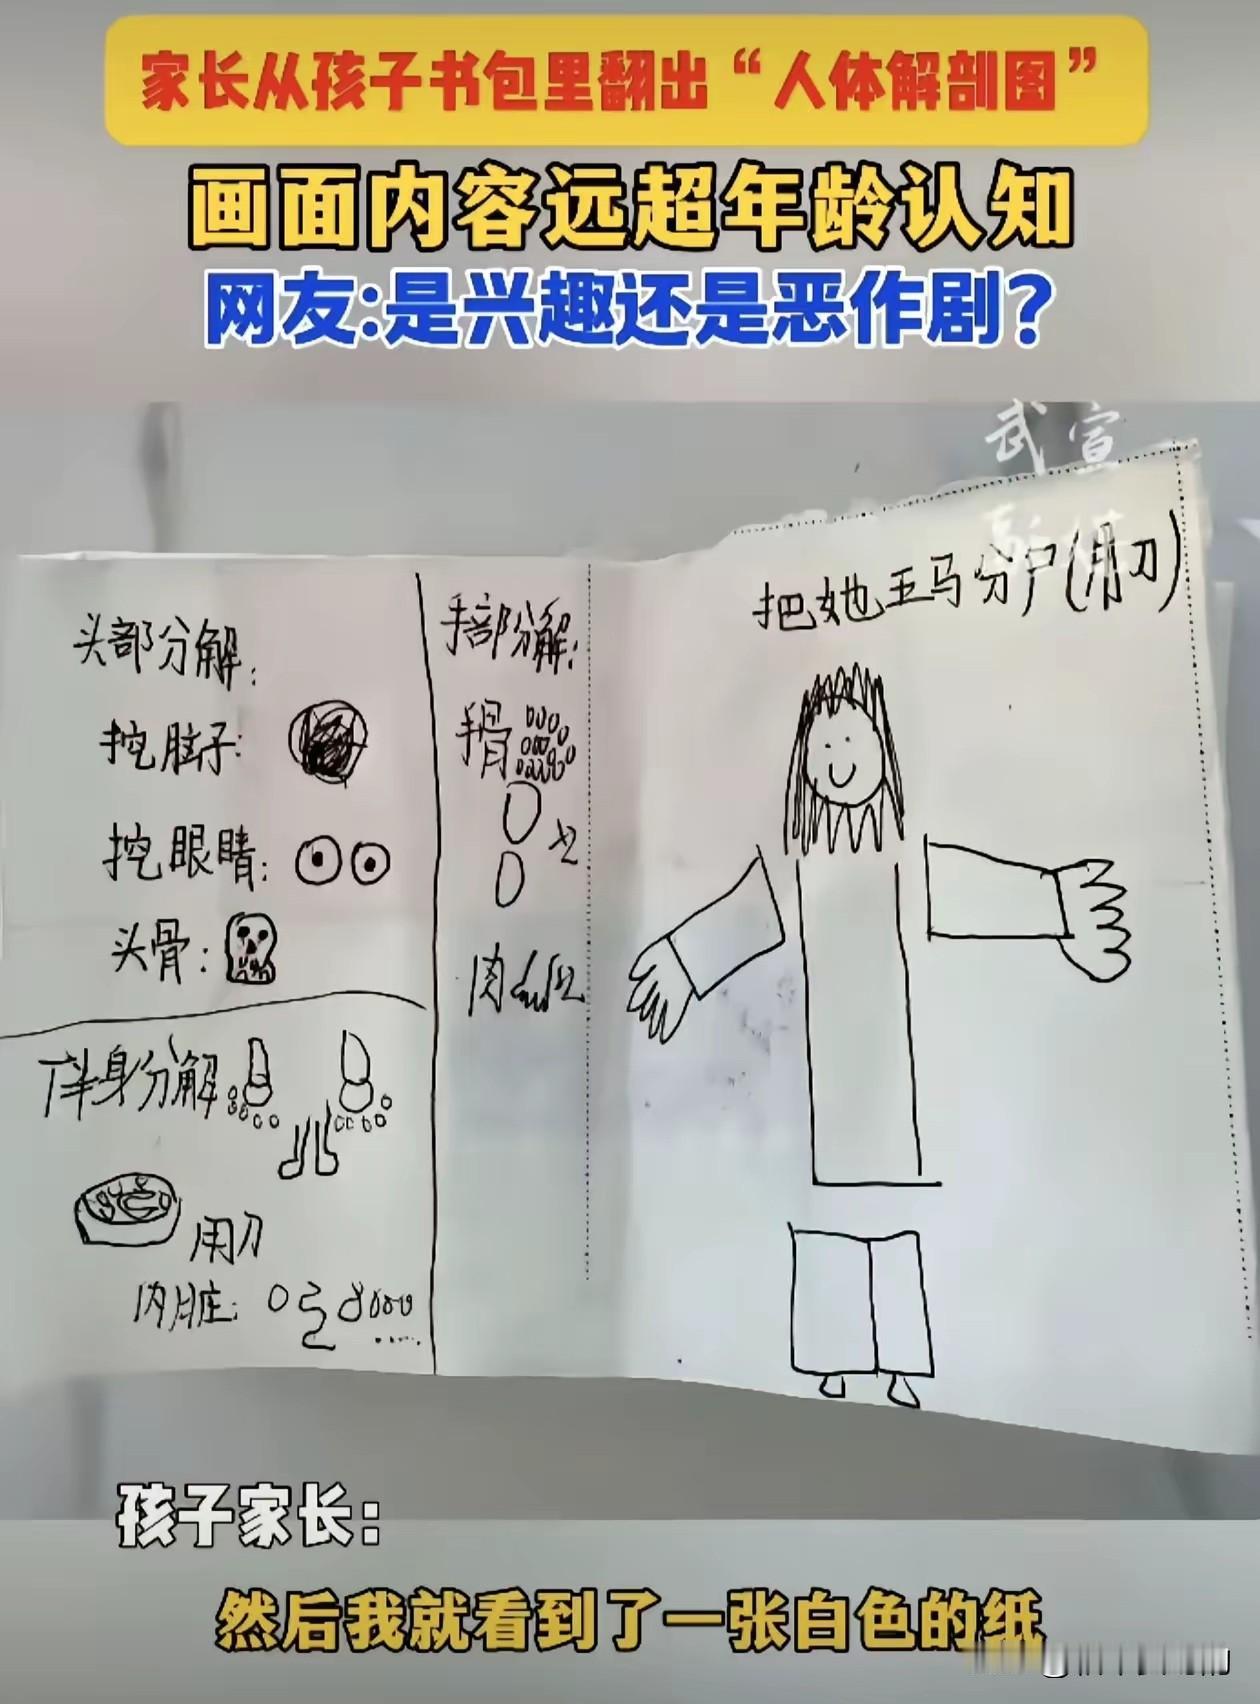 家长从孩子书包里翻出“人体解剖图”
画面内容远超年龄认知
网友:是兴趣还是恶作剧?
武宣
把她五马分尸(用刀)
头部分解:
挖脑子:
挖眼睛:
头骨:
手部分解:
手骨
x2
肉
x2
下半身分解
用刀
内脏:
孩子家长:
然后我就看到了一张白色的纸